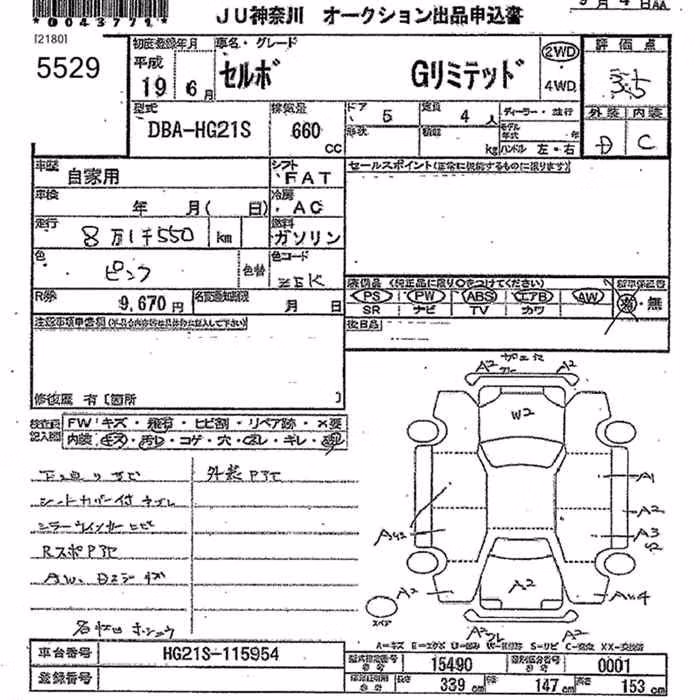 *0043771*
JU神奈川 オークション出品申込書
[2180]
5529
初度登録年月
平成
19 6月
車名・グレード
セルボ Gリミテッド
2WD
・
4WD
評価点
3.5
外装 内装
D C
型式
DBA-HG21S
排気量
660
CC
ドア 5
定員 4人
形状
積載 kg
ディーラー・並行
モデル年式 年
ハンドル 左・右
車歴 自家用
シフト FAT
セールスポイント(正常に機能するものに限ります)
車検 年 月( 日)
冷房 AC
走行 8万1千550 km
燃料 ガソリン
色 ピンク
色替
色コード ZEK
R券 9,670円
名変期限 月 日
装備品(純正品に限り○をつけてください)
PS PW ABS エアB AW
SR ナビ TV カワ
・無
後日品
注意事項申告欄
修復歴 有〔箇所 〕
検査員記入欄
FW キズ・飛石・ヒビ割・リペア跡・×要
内装 キズ・汚レ・コゲ・穴・・キレ・
外装P3て
シートカバー付
ミラーウインカーヒビ
RスポP3て
AW、
A2 A2
W2
A1
A2
A3
A2
A2
A2 A2
スペア
A=キズ E=エクボ U=凹み W=波 S=サビ C=腐食 XX=交換済
車台番号 HG21S-115954
登録番号
型式指定番号 15490
類別区分番号 0001
長さ 339cm
幅 147cm
高さ 153cm